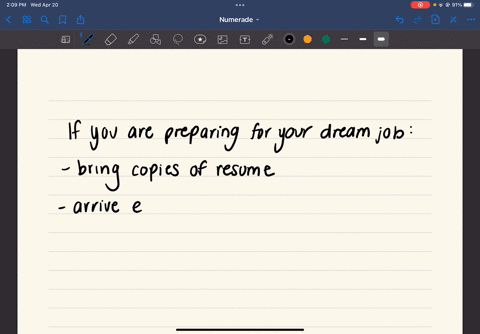 2:09 PM Wed Apr 20
91%
Numerade
If you are preparing for your dream job:
- bring copies of resume
- arrive e